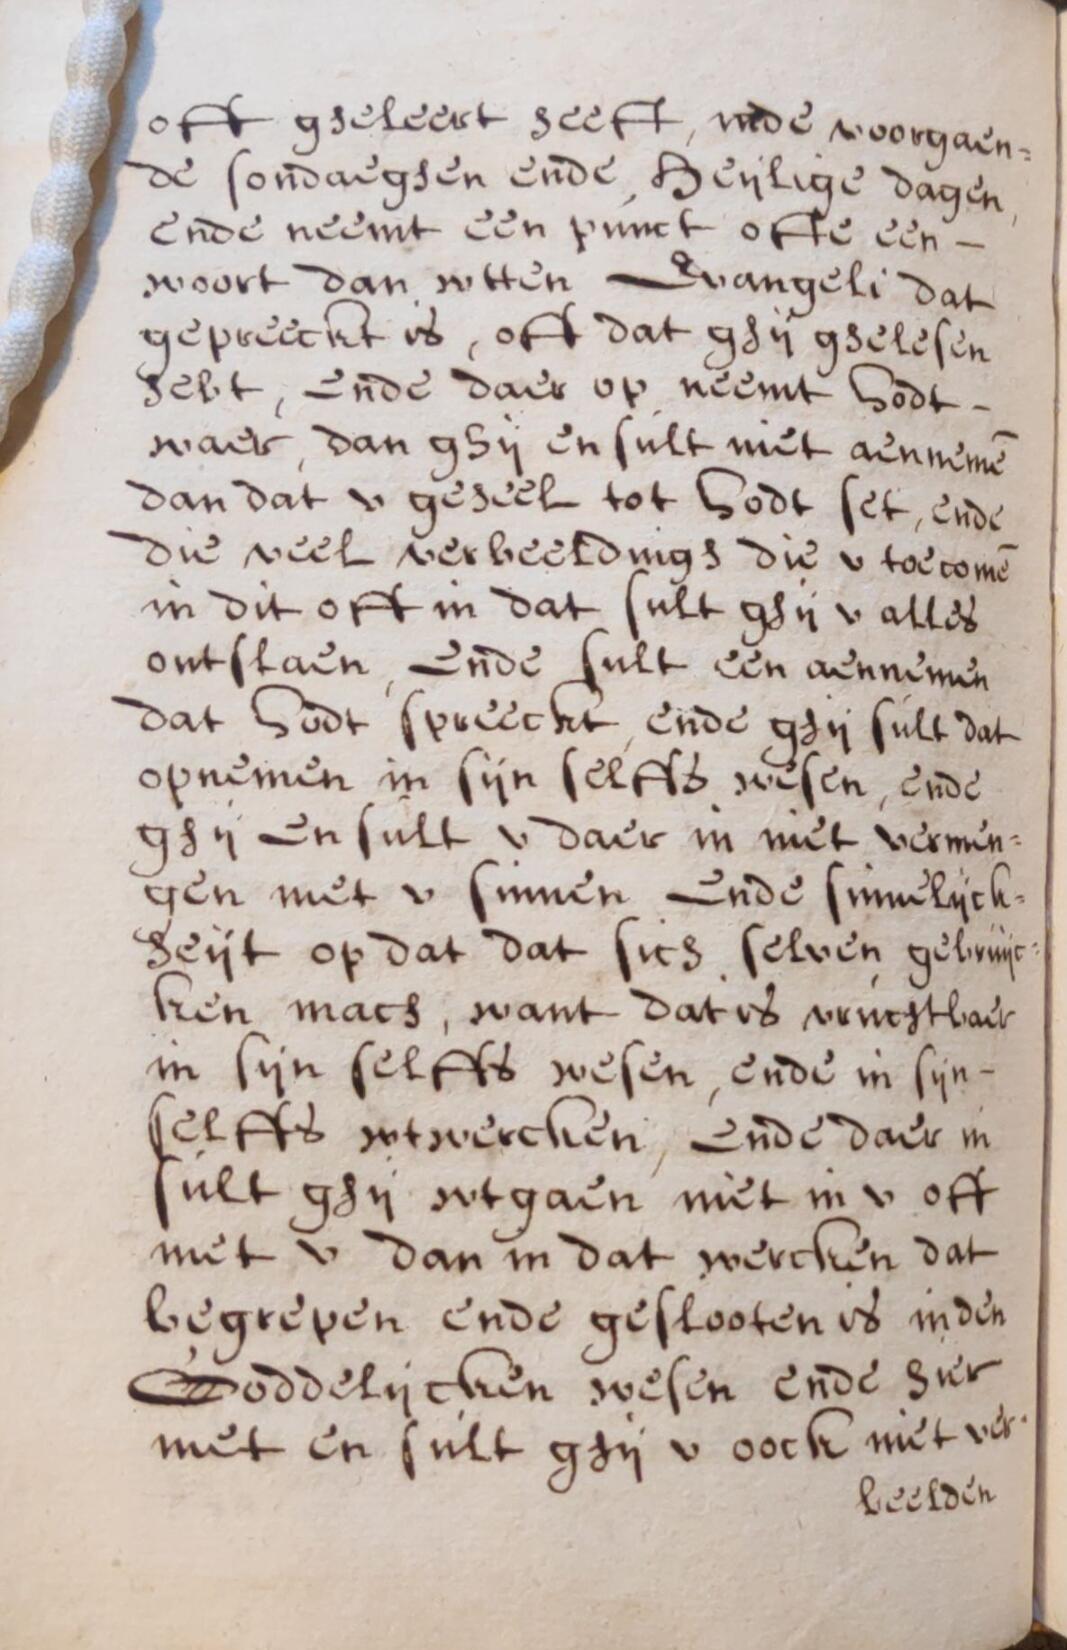 offt gheleert heefft, inde voorgaen=
de sondaeghen ende, Heijlige dagen,
ende neemt een punct offte een –
woort dan wtten Evangeli dat
gepreeckt is, offt dat ghij ghelesen
hebt, Ende daer op neemt Godt –
waer, dan ghij en sult niet aennemē
dan dat v geheel tot Godt set, ende
die veel verbeeldings die v toecomē
in dit offt in dat sult ghij v alles
ontslaen, Ende sult een aennemen
dat Godt spreeckt, ende ghij sult dat
opnemen in sijn selffs wesen, ende
ghij En sult v daer in niet vermen=
gen met v sinnen Ende sinnelijck=
heijt op dat dat sich selven gebruijc=
ken mach, want dat is vruchtbaer
in sijn selffs wesen, ende in sijn –
selffs wtwercken, Ende daer in
sult ghij wtgaen niet in v offt
met v dan in dat wercken dat
begrepen ende geslooten is inden
Goddelijcken wesen ende hier
met en sult ghij v oock niet ver=
beelden